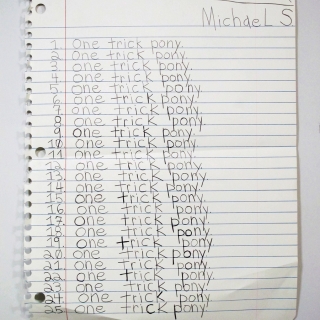 Michael S
1. One trick pony.
2. One trick pony.
3. One trick pony.
4. One trick pony.
5. One trick pony.
6. One trick pony.
7. One trick pony.
8. One trick pony.
9. One trick pony.
10. One trick pony.
11. One trick pony.
12. One trick pony.
13. One trick pony.
14. One trick pony.
15. One trick pony.
16. One trick pony.
17. One trick pony.
18. One trick pony.
19. One trick pony.
20. One trick pony.
21. One trick pony.
22. One trick pony.
23. One trick pony.
24. One trick pony.
25. One trick pony.